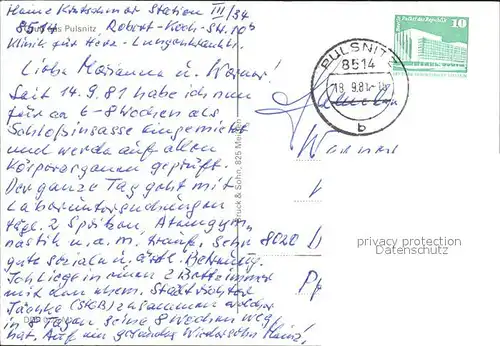 Heinz Kretschmer Station III/34
8514 Robert-Koch-Str. 10b
Gruß aus Pulsnitz
Klinik für Herz- Lungenkrankh.
Liebe Marianne u. Werner!
Seit 14.9.81 habe ich mich
für ca 6-8 Wochen als
Schloßinsasse eingemietet
und werde auf allen
Körperorganen geprüft.
Der ganze Tag geht mit
Laboruntersuchungen
tägl. 2 Spritzen, Atemgym-
nastik u.a.m. drauf. Sehr
gute soziale u. ärztl. Betreuung.
Ich liege in einem 2 Bettzimmer
mit dem ehem. Stadtrichter
zusammen welcher
in 8 Tagen seine 8 Wochen weg
hat. Auf ein gesundes Wiedersehn Heinz!
Druck & Sohn, 825 Meißen
PULSNITZ
8514
18. 9.81
b
Palast der Republik
10
Werner
8020
privacy protection
Datenschutz